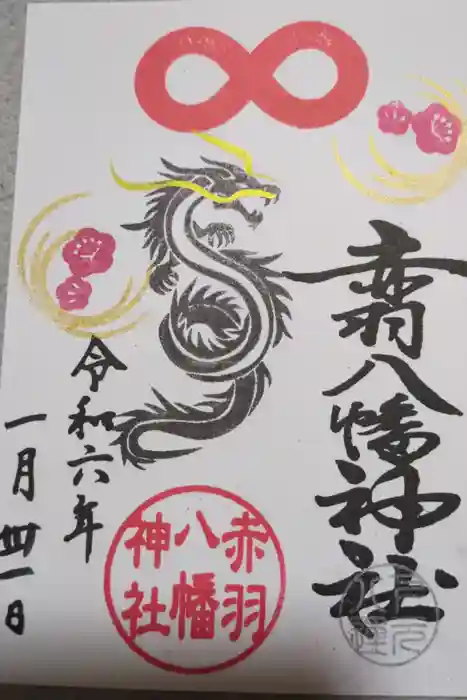 赤羽八幡神社
令和六年
一月卅一日
赤羽
八幡
神社